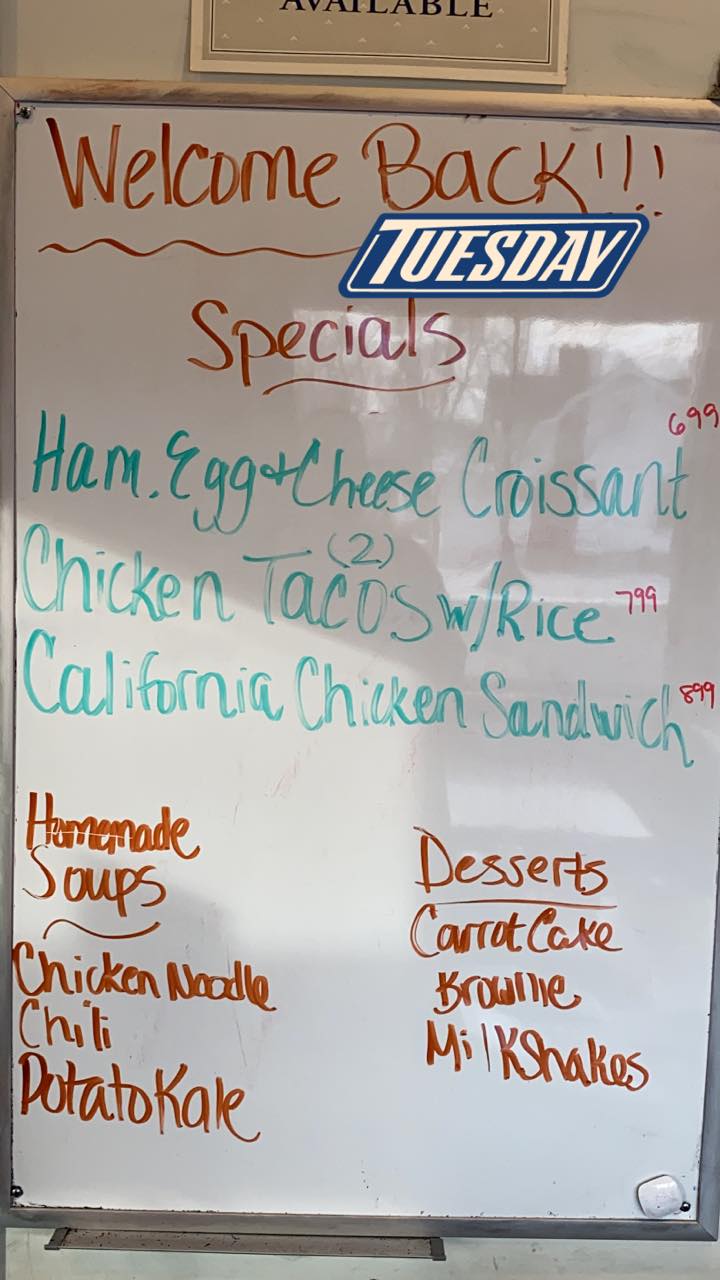 AVAILABLE
Welcome Back!!!
TUESDAY
Specials
699
Ham. Egg + Cheese Croissant
(2)
Chicken Tacos w/Rice 799
California Chicken Sandwich 899
Homemade
Soups
Chicken Noodle
Chili
Potato Kale
Desserts
Carrot Cake
Brownie
MilkShakes